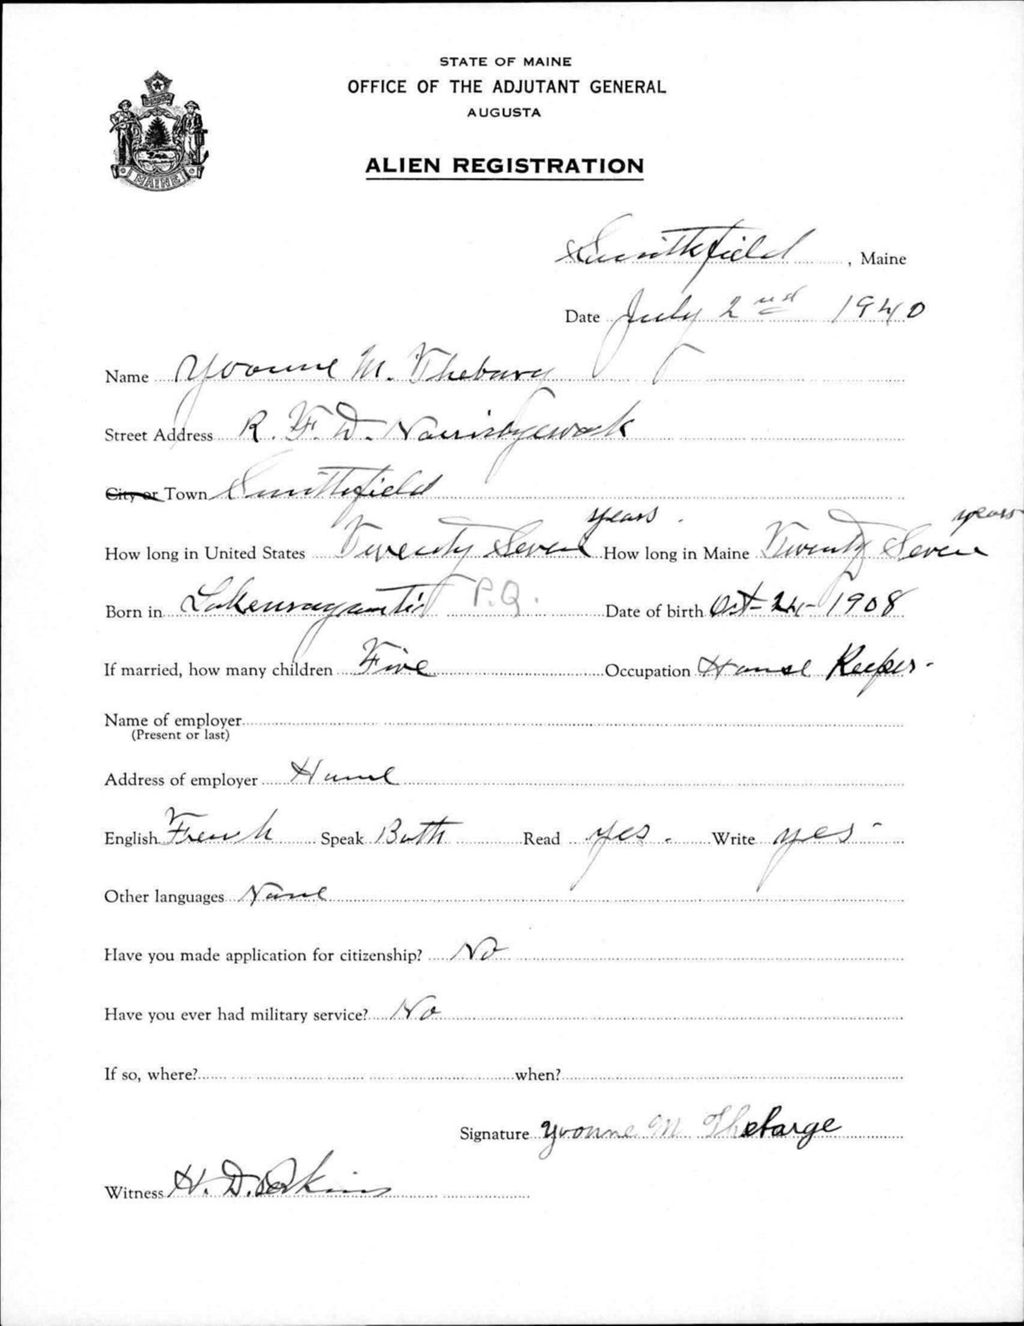 STATE OF MAINE
OFFICE OF THE ADJUTANT GENERAL
AUGUSTA
MAINE
ALIEN REGISTRATION
Smithfield, Maine
Date July 2nd 1940
Name Yvonne M. Thebarg
Street Address R. F. D. Norridgewock
City or Town Smithfield
How long in United States Twenty Seven years. How long in Maine Twenty Seven years
Born in P.Q. Date of birth Oct-24-1908
If married, how many children Five Occupation House Keeper-
Name of employer
(Present or last)
Address of employer
English French Speak Both Read yes. Write yes-
Other languages None
Have you made application for citizenship? No
Have you ever had military service? No
If so, where? when?
Signature Yvonne M Thebarge
Witness H. D. Perkins